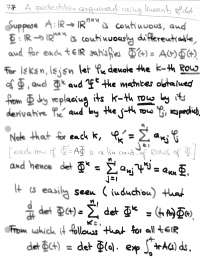 Suppose A: ℝ → ℝⁿˣⁿ is continuous, and
Φ: ℝ → ℝⁿˣⁿ is continuously differentiable,
and for each t∈ℝ satisfies Φ̇(t) = A(t)Φ(t)
For 1≤k≤n, 1≤j≤n let φₖ denote the k-th row
of Φ, and Φᵏ and Ψ the matrices obtained
from Φ by replacing its k-th row by its
derivative φₖ' and by the j-th row φⱼ, respectively.
Note that for each k, φₖ' = Σⱼ₌₁ⁿ aₖⱼ φⱼ
and hence det Φᵏ = Σⱼ₌₁ⁿ aₖⱼ Ψᵏʲ = aₖₖ Φ.
It is easily seen (induction) that
d/dt det Φ(t) = Σₖ₌₁ⁿ det Φᵏ = (tr A)Φ(t),
From which it follows that for all t∈ℝ
det Φ(t) = det Φ(0) . exp ∫₀ᵗ tr A(s) ds.